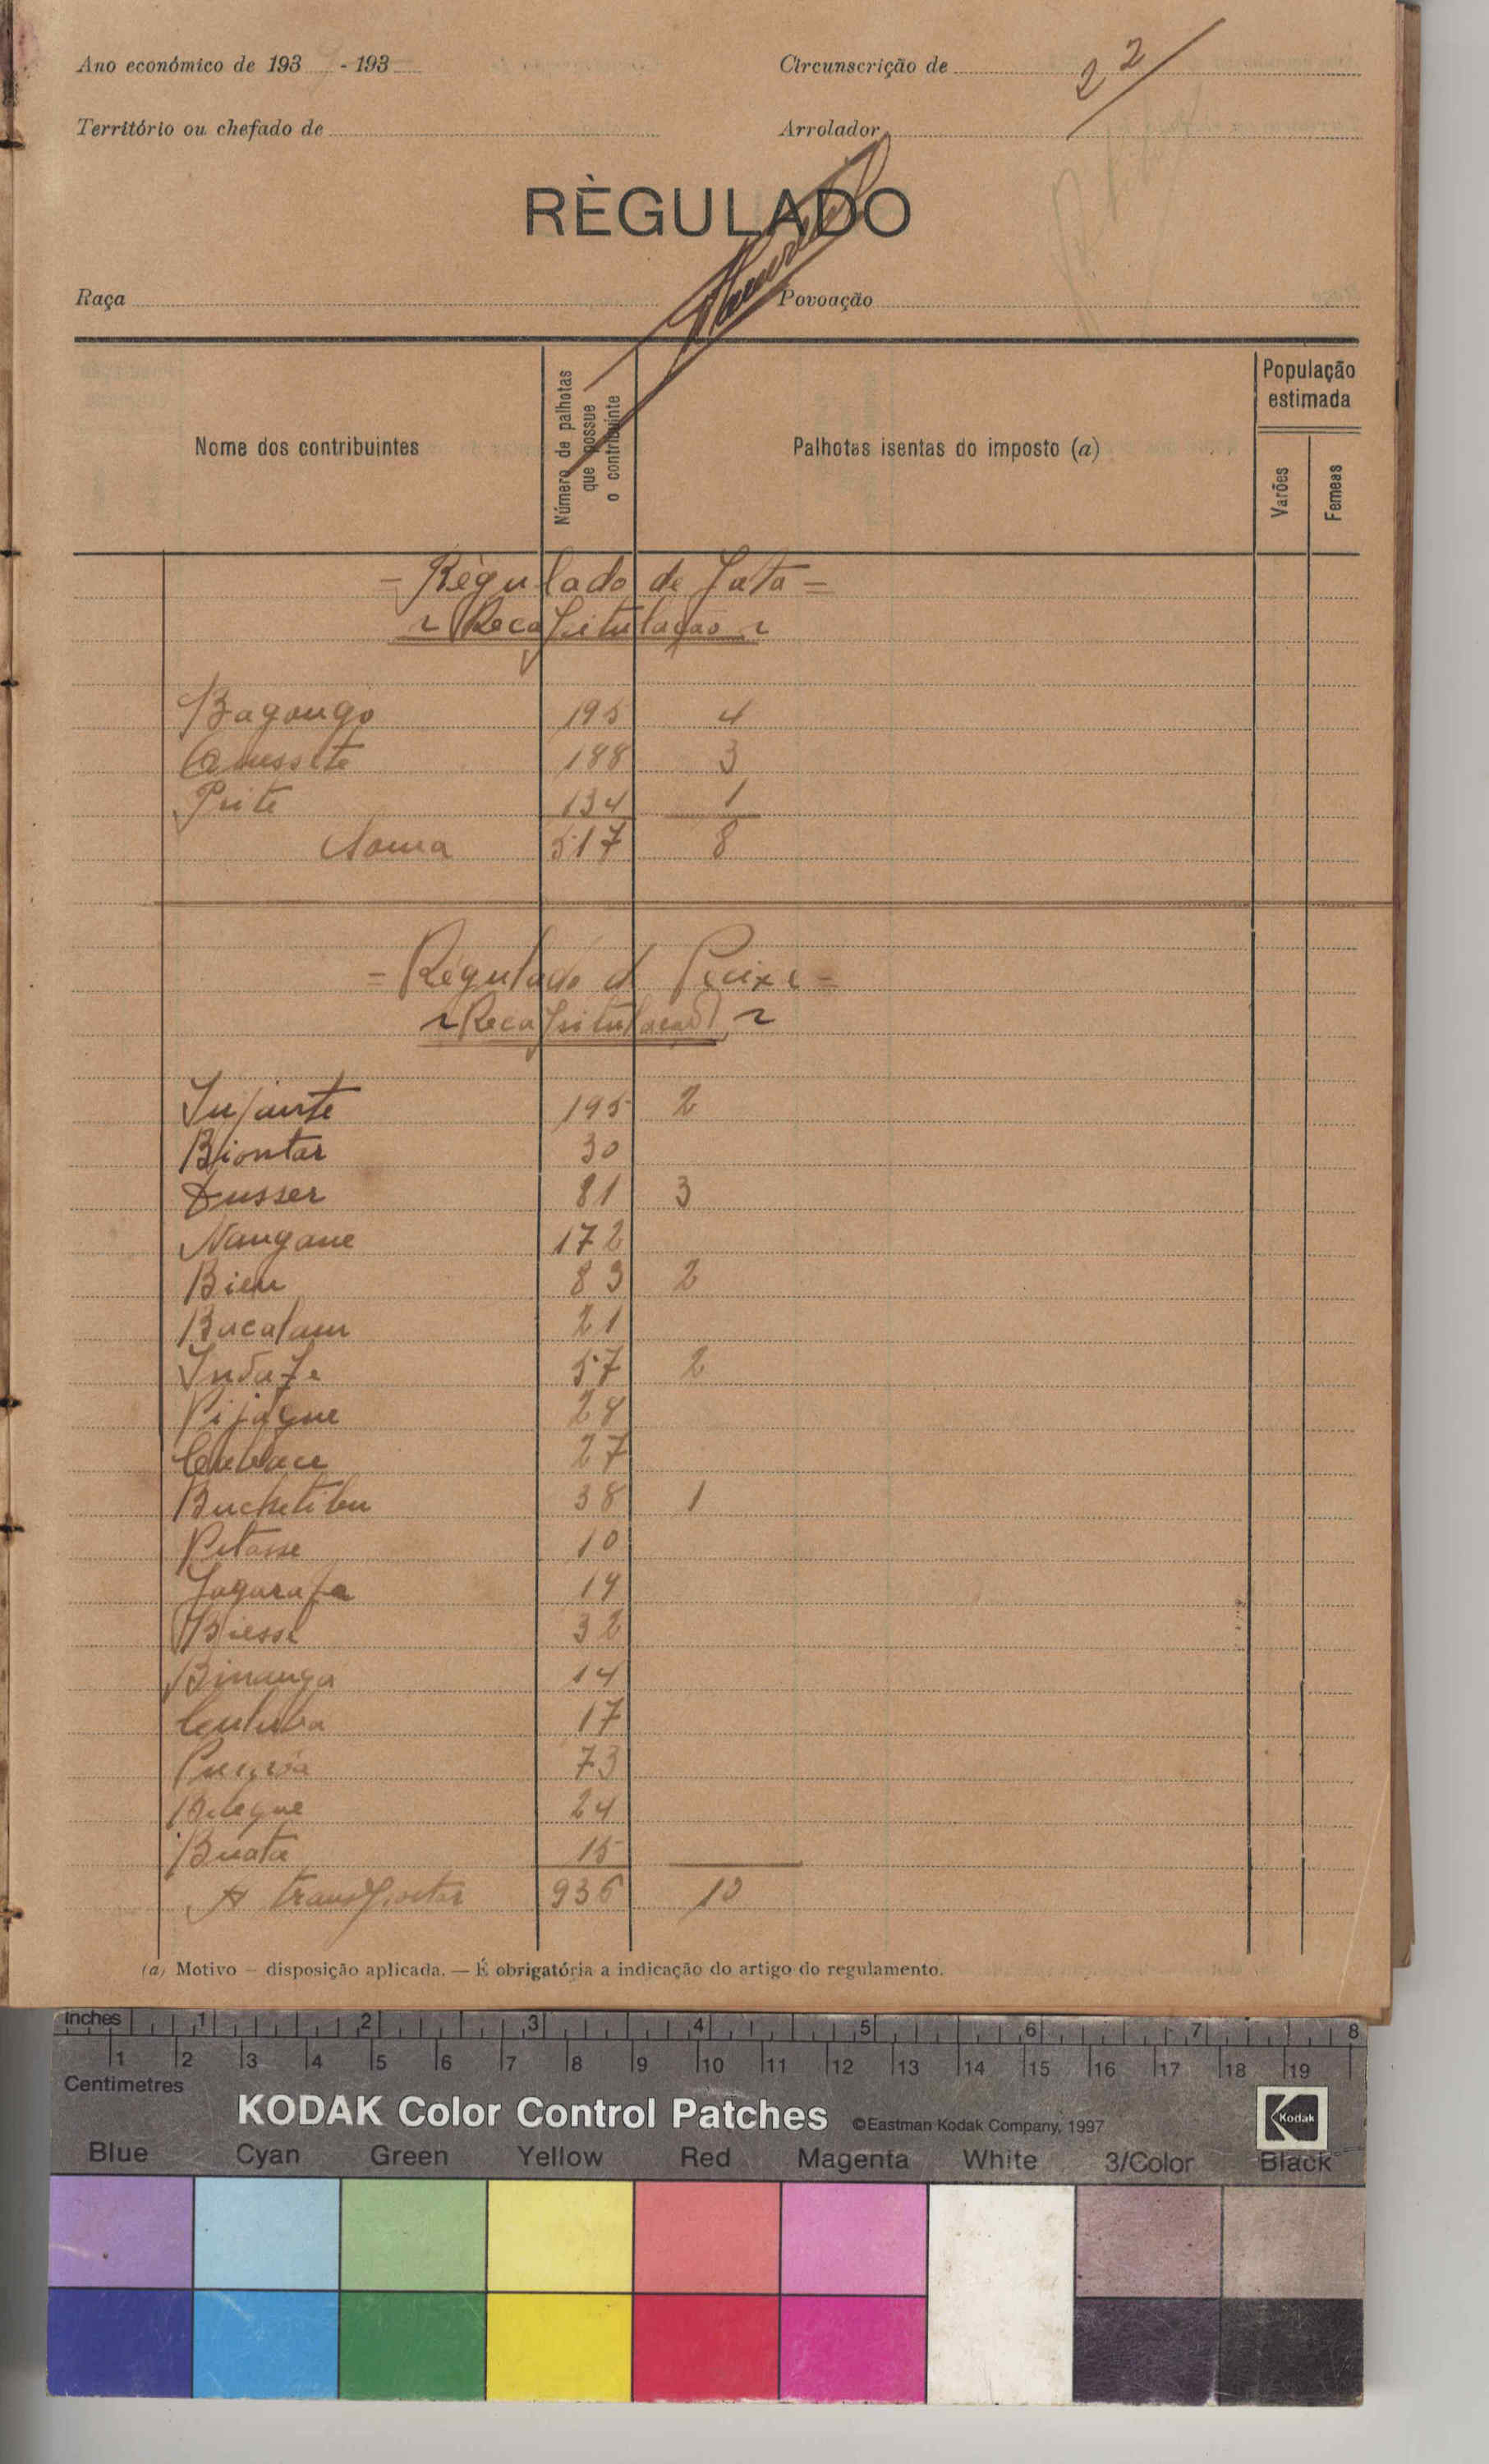 Ano económico de 193 - 193
Circunscrição de
22
Território ou chefado de
Arrolador
RÈGULADO
Raça
Povoação
Nome dos contribuintes
Número de palhotas que possue o contribuinte
Palhotas isentas do imposto (a)
População estimada
Varões
Femeas
- Règulado de Jata =
Recapitulação
Bagongo 195 4
188 3
134 1
Soma 517 8
= Règulado d Peixe =
Recapitulação
195 2
Biontar 30
Dusser 81 3
Nangane 172
Bieu 83 2
Bucalam 21
57 2
Pijaque 28
27
38 1
Petasse 10
19
Biesse 32
Binanga 14
17
73
24
Buata 15
A transportar 936 10
(a) Motivo — disposição aplicada. — É obrigatória a indicação do artigo do regulamento.
inches 1 2 3 4 5 6 7 8
1 2 3 4 5 6 7 8 9 10 11 12 13 14 15 16 17 18 19
Centimetres
KODAK Color Control Patches ©Eastman Kodak Company, 1997 Kodak
Blue Cyan Green Yellow Red Magenta White 3/Color Black